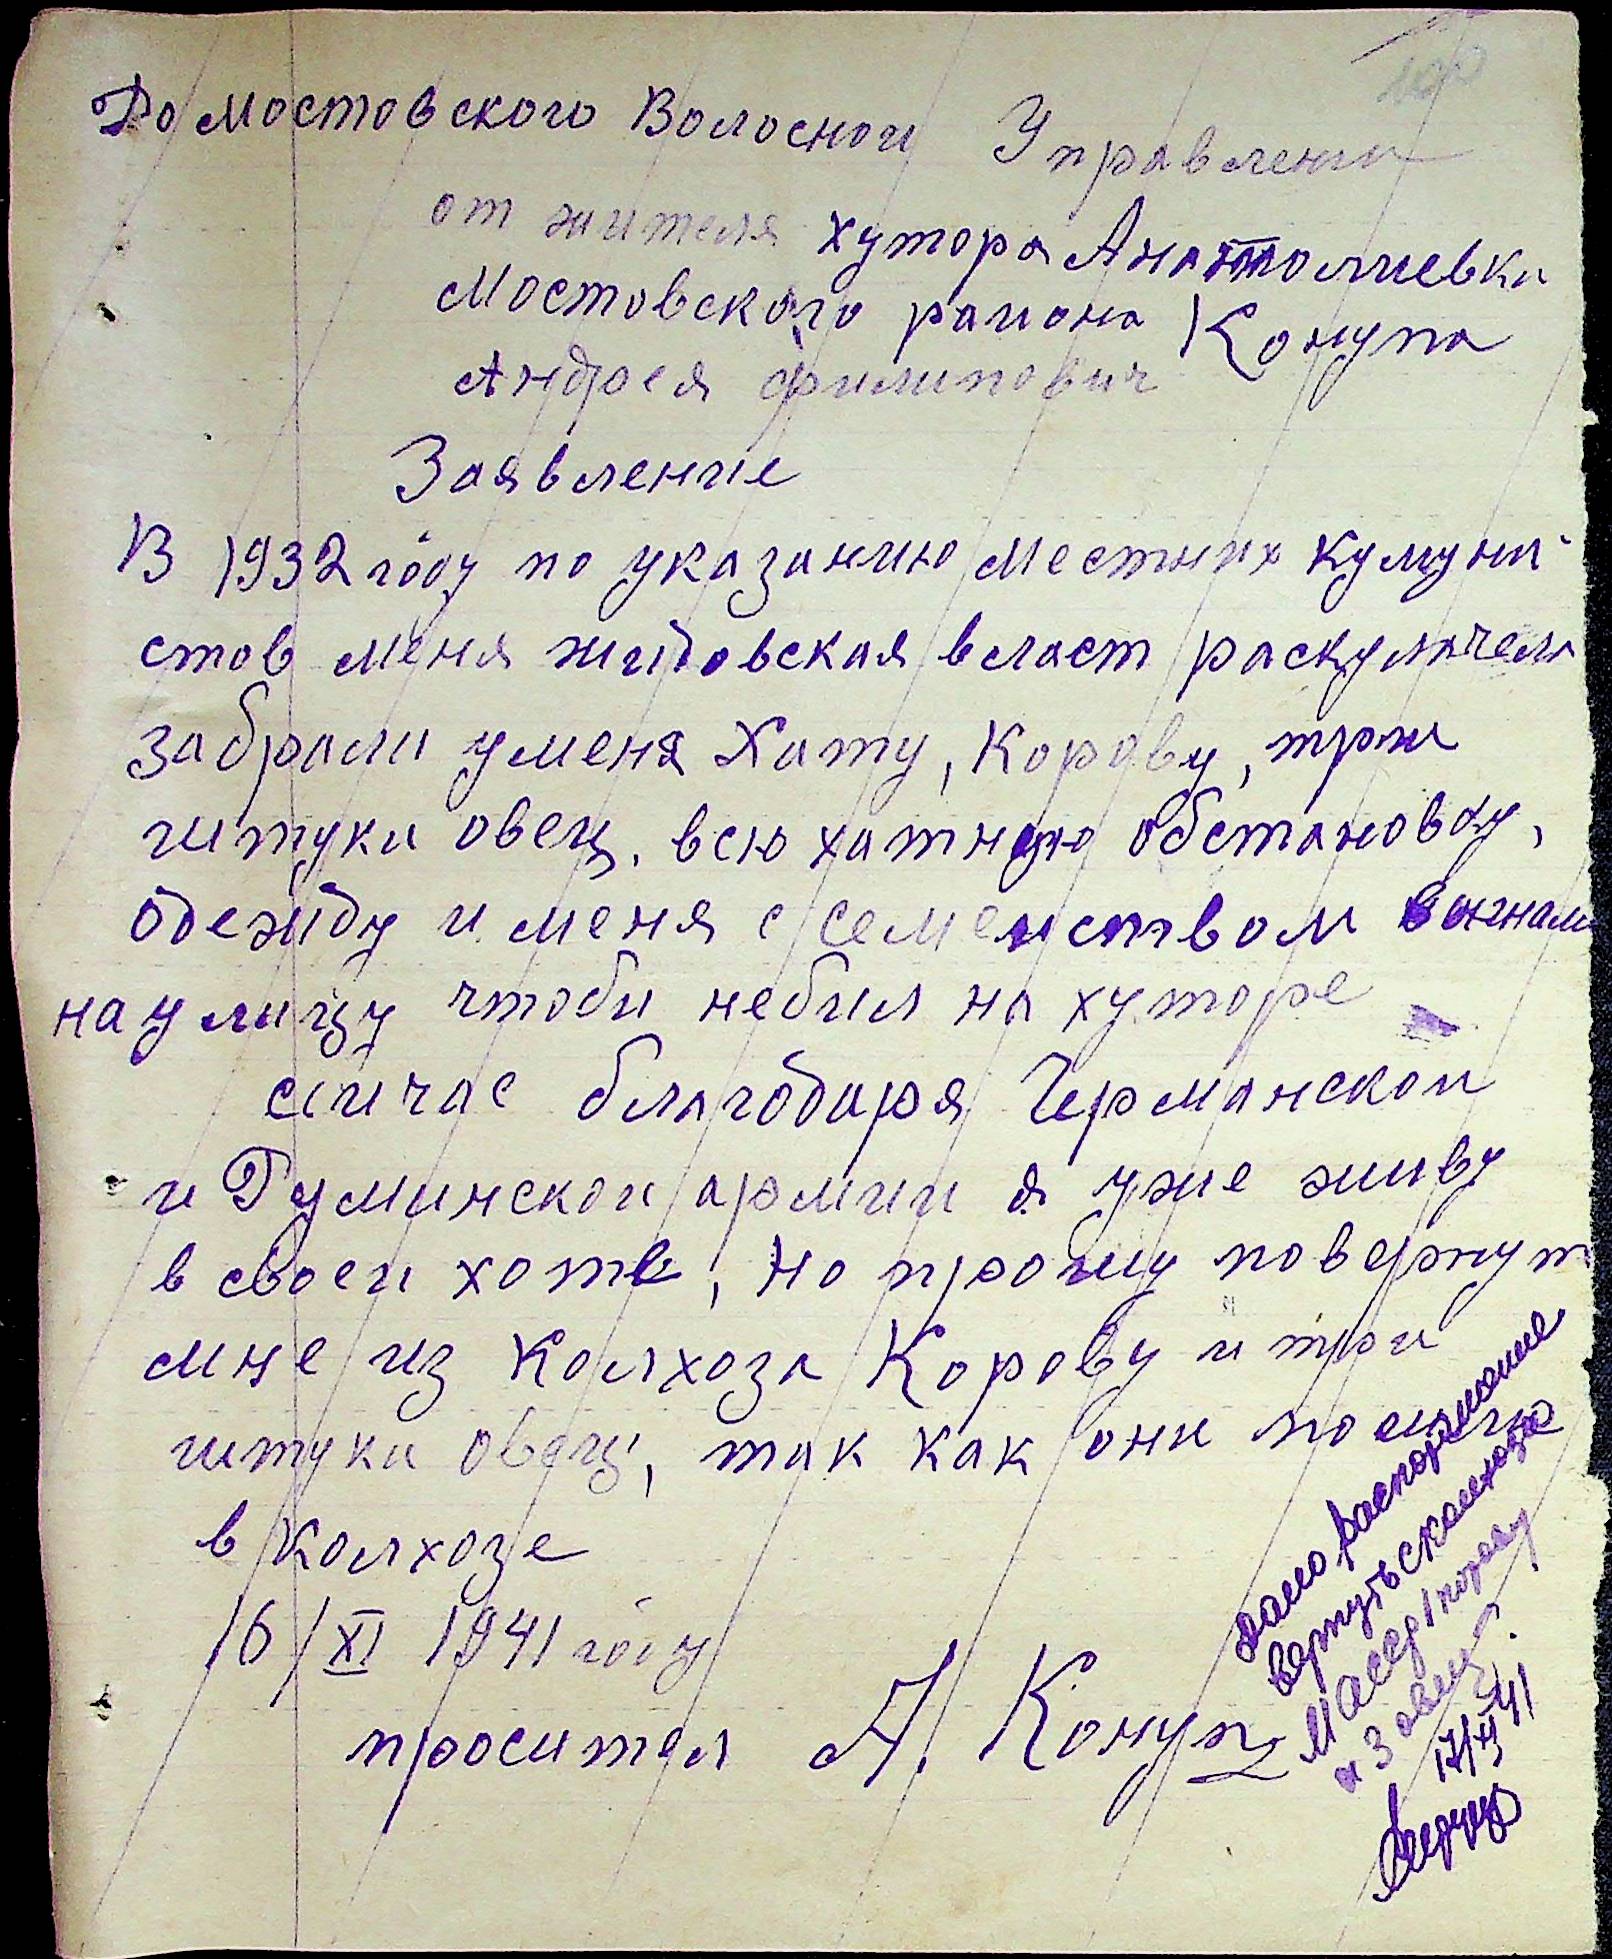 До Мостовского Волосной Управлени
от жителя хутора Анатолиевки
Мостовского района Конупа
Андрея Филипович
Заявление
В 1932 году по указанию местних кумуни-
стов меня жидовская власт раскулачела
забрали у меня Хату, Корову, три
штуки овец, всю хатную обстановку,
одежду и меня с семейством выгнали
на улицу чтоби небил на хуторе
сийчас благодаря Германской
и Руминской армии я уже живу
в своей хате, но прошу повернут
мне из колхоза Корову и три
штуки овец, так как они
в колхозе
16/XI 1941 году
проситель А. Конуп
дано распоряжение
вернуть с колхоза
1 корову
и 3 овец
17/XI 41